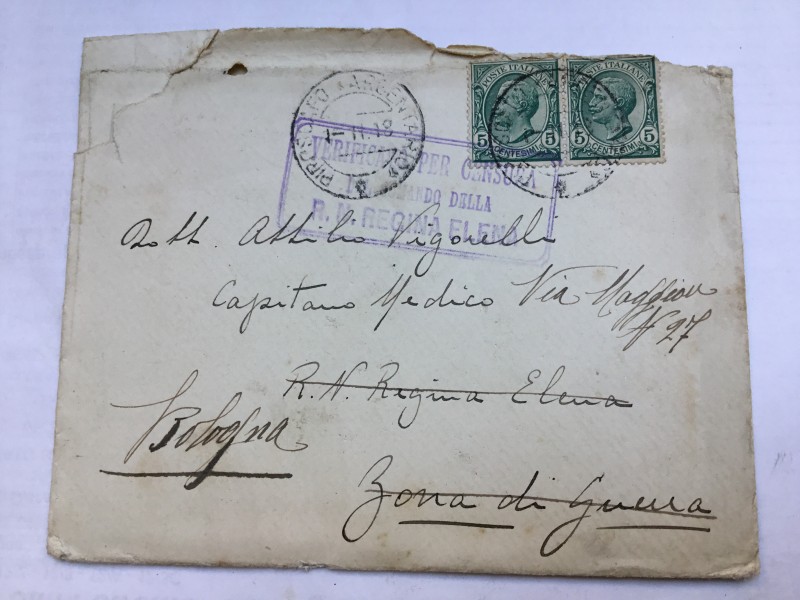 POSTE ITALIANE
5 CENTESIMI 5
POSTE ITALIANE
5 CENTESIMI 5
PIROSCAFO
1-11-18
VERIFICATO PER CENSURA
COMANDO DELLA
R. N. REGINA ELENA
Dott. Attilio Vigorelli
Capitano Medico Via Maggiore
N 27
R. N. Regina Elena
Bologna
Zona di Guerra